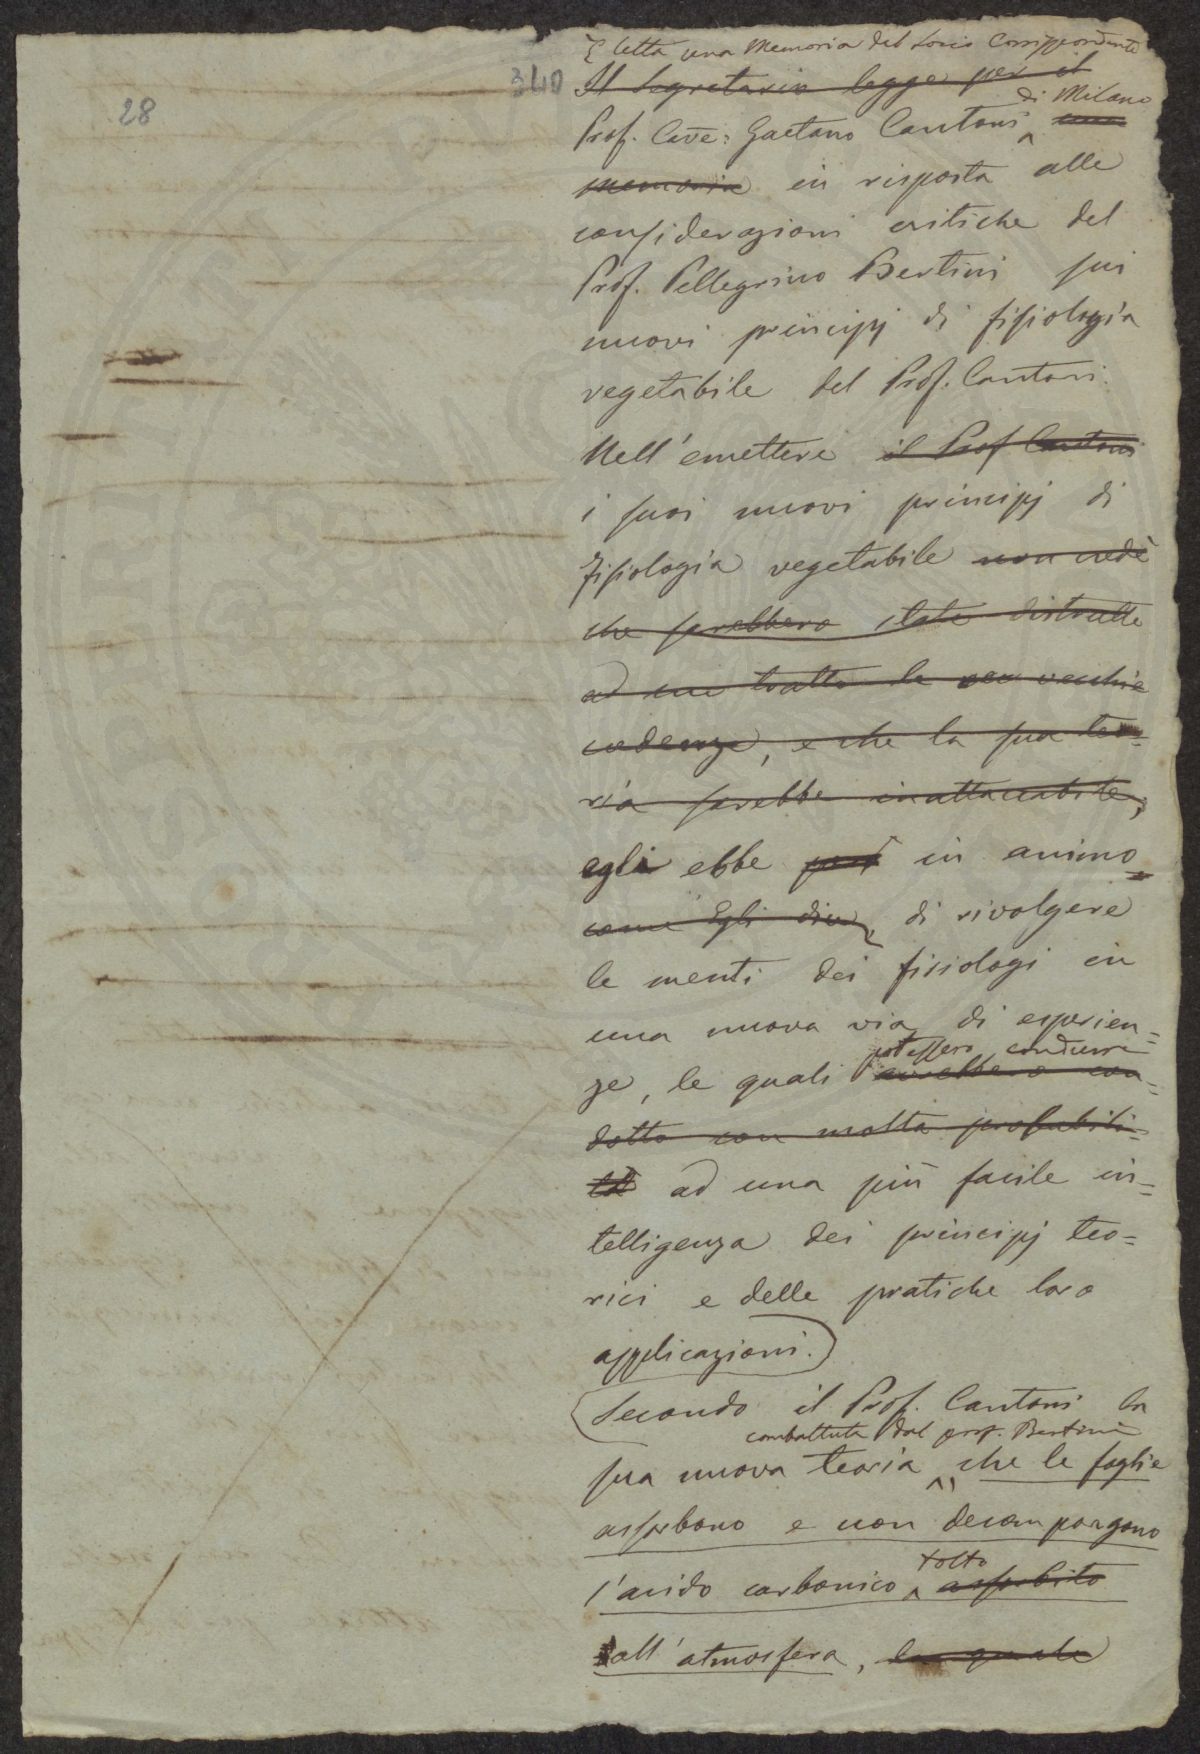 28
340
È letta una Memoria del Socio Corrispondente
Il Segretario legge per il
di Milano
Prof. Cave: Gaetano Cantoni una
memoria in risposta alle
considerazioni critiche del
Prof. Pellegrino Bertini sui
nuovi principj di fisiologia
vegetabile del Prof. Cantoni.
Nell'emettere il Prof Cantoni
i suoi nuovi principj di
Fisiologia vegetabile non credè
che sarebbero state distrutte
ad un tratto le vecchie
credenze, e che la sua teo=
ria sarebbe inattaccabile,
egli ebbe però in animo
come Egli dice, di rivolgere
le menti dei fisiologi in
una nuova via di esperien=
potessero condurre
ze, le quali avrebbero con=
dotto con molta probabili=
tà ad una più facile in=
telligenza dei principj teo=
rici e delle pratiche loro
applicazioni.
Secondo il Prof. Cantoni la
combattuta dal prof. Bertini
sua nuova teoria, che le foglie
assorbono e non decompongono
tolto
l'acido carbonico assorbito
dall'atmosfera, la quale